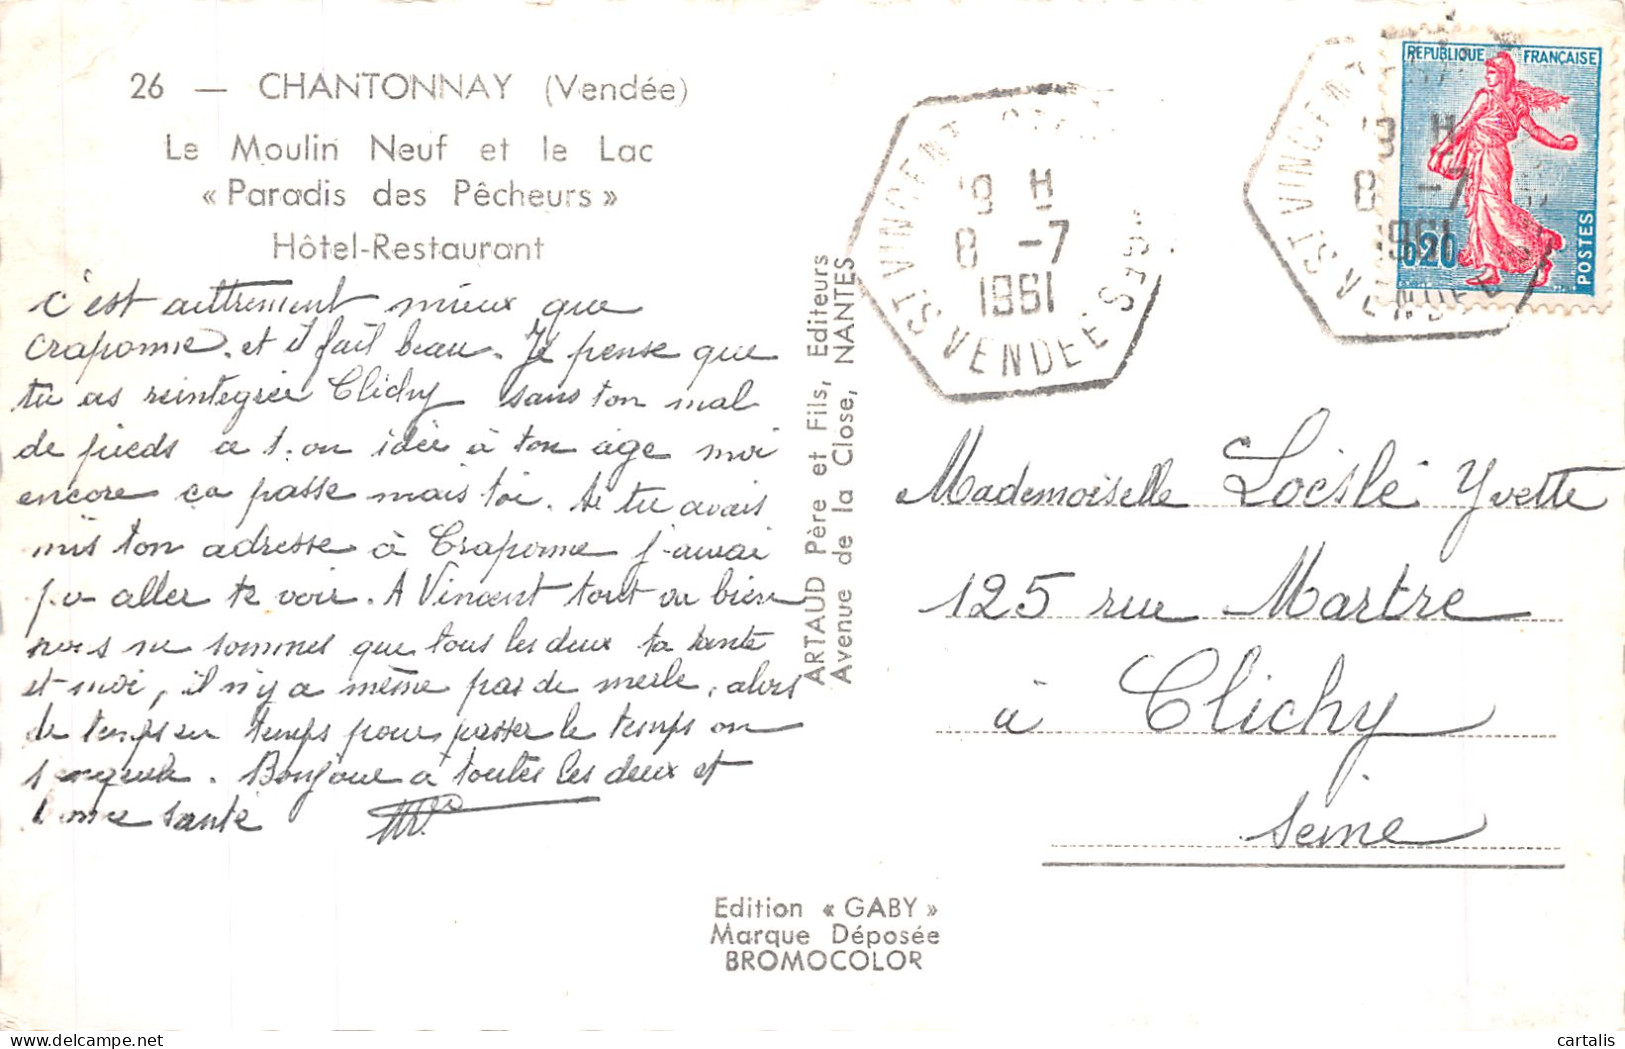 26 — CHANTONNAY (Vendée)
Le Moulin Neuf et le Lac
« Paradis des Pêcheurs »
Hôtel-Restaurant
c'est autrement mieux que
Craponne. et il fait beau. Je pense que
tu as reintegrée Clichy sans ton mal
de pieds a t. on idée à ton age moi
encore ça passe mais toi. Si tu avais
mis ton adresse à Craponne j-aurai
pu aller te voir. A Vincent tout va bien
nous ne sommes que tous les deux ta tante
et moi, il n'y a même pas de merle, alors
de temps en temps pour passer le temps on
s'engueule. Bonjour à toutes les deux et
bonne santé
ARTAUD Père et Fils, Editeurs
Avenue de la Close, NANTES
ST VINCENT
19 H
8 -7
1961
VENDEE
ST VINCENT
19 H
8 -7
1961
VENDEE
REPUBLIQUE FRANÇAISE
0,20
POSTES
Mademoiselle Loislé Yvette
125 rue Martre
à Clichy
Seine
Edition « GABY »
Marque Déposée
BROMOCOLOR
cartalis